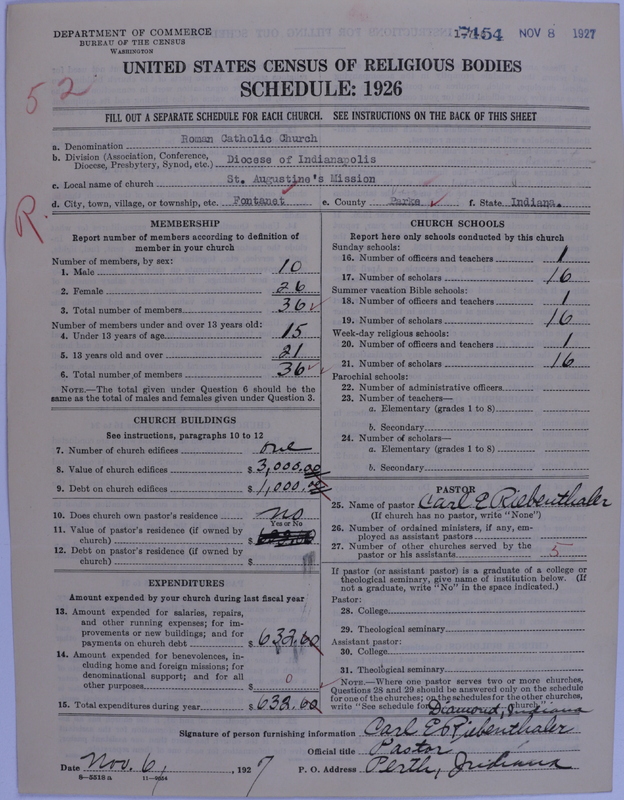 DEPARTMENT OF COMMERCE
BUREAU OF THE CENSUS
WASHINGTON
17454 NOV 8 1927
52
UNITED STATES CENSUS OF RELIGIOUS BODIES
SCHEDULE: 1926
FILL OUT A SEPARATE SCHEDULE FOR EACH CHURCH. SEE INSTRUCTIONS ON THE BACK OF THIS SHEET
a. Denomination Roman Catholic Church
b. Division (Association, Conference, Diocese, Presbytery, Synod, etc.) Diocese of Indianapolis
c. Local name of church St. Augustine's Mission
d. City, town, village, or township, etc. Fontanet e. County Parke f. State Indiana.
R.
MEMBERSHIP
Report number of members according to definition of
member in your church
Number of members, by sex:
1. Male 10
2. Female 26
3. Total number of members 36
Number of members under and over 13 years old:
4. Under 13 years of age 15
5. 13 years old and over 21
6. Total number of members 36
NOTE.—The total given under Question 6 should be
same as the total of males and females given under Question 3.
CHURCH BUILDINGS
See instructions, paragraphs 10 to 12
7. Number of church edifices one
8. Value of church edifices $ 3,000.00
9. Debt on church edifices $ 1,000.00
10. Does church own pastor's residence No
Yes or No
11. Value of pastor's residence (if owned by
church) $
12. Debt on pastor's residence (if owned by
church) $
EXPENDITURES
Amount expended by your church during last fiscal year
13. Amount expended for salaries, repairs,
and other running expenses; for im-
provements or new buildings; and for
payments on church debt $ 632.60
14. Amount expended for benevolences, in-
cluding home and foreign missions; for
denominational support; and for all
other purposes $ 0
15. Total expenditures during year $ 632.60
CHURCH SCHOOLS
Report here only schools conducted by this church
Sunday schools:
16. Number of officers and teachers 1
17. Number of scholars 16
Summer vacation Bible schools:
18. Number of officers and teachers 1
19. Number of scholars 16
Week-day religious schools:
20. Number of officers and teachers 1
21. Number of scholars 16
Parochial schools:
22. Number of administrative officers
23. Number of teachers—
a. Elementary (grades 1 to 8)
b. Secondary
24. Number of scholars—
a. Elementary (grades 1 to 8)
b. Secondary
PASTOR
25. Name of pastor Carl E Riebenthaler
(If church has no pastor, write "None")
26. Number of ordained ministers, if any, em-
ployed as assistant pastors
27. Number of other churches served by the
pastor or his assistants 5
If pastor (or assistant pastor) is a graduate of a college or
theological seminary, give name of institution below. (If
not a graduate, write "No" in the space indicated.)
Pastor:
28. College
29. Theological seminary
Assistant pastor:
30. College
31. Theological seminary
NOTE.—Where one pastor serves two or more churches,
Questions 28 and 29 should be answered only on the schedule
for one of the churches; on the schedules for the other churches,
write "See schedule for Diamond, Indiana church."
Signature of person furnishing information Carl E Riebenthaler
Official title Pastor
Date Nov. 6, 1927 P. O. Address Perth, Indiana
8-5518 a